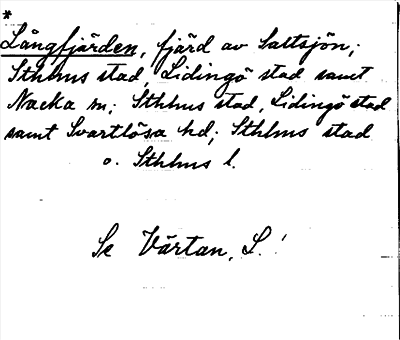 *
Långfjärden, fjärd av Saltsjön;
Sthlms stad, Lidingö stad samt
Nacka sn; Sthlms stad, Lidingö stad
samt Svartlösa hd; Sthlms stad
o. Sthlms l.
Se Värtan, L. !